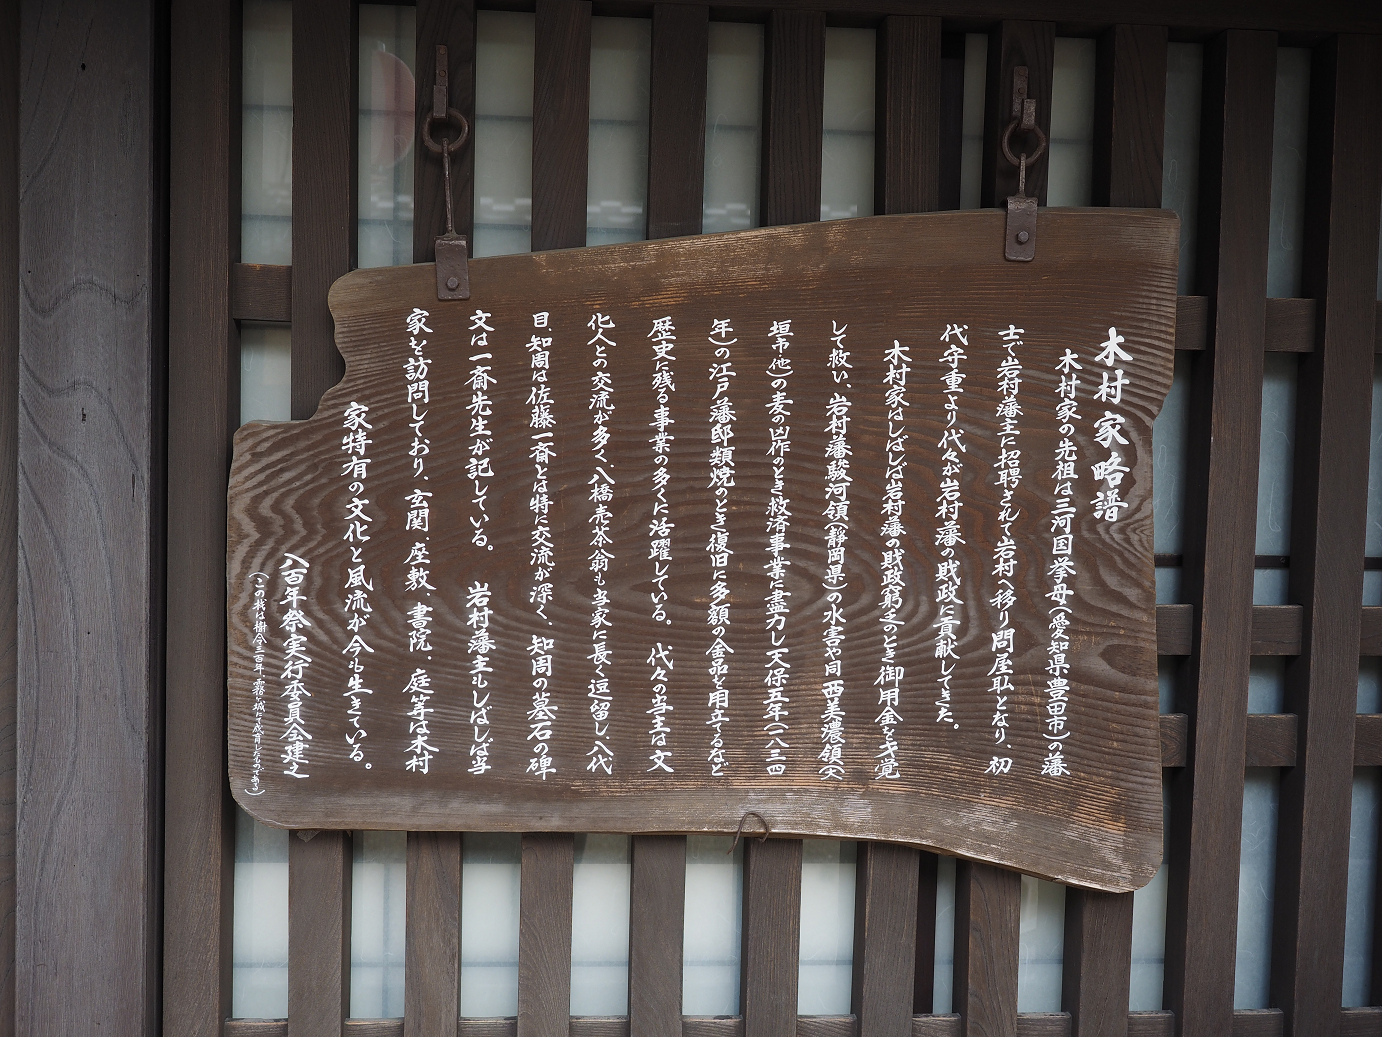 木村家略譜
木村家の先祖は三河国挙母(愛知県豊田市)の藩
士で岩村藩主に招聘されて岩村へ移り問屋職となり、初
代守重より代々が岩村藩の財政に貢献してきた。
木村家はしばしば岩村藩の財政窮乏のとき御用金を才覚
して救い、岩村藩駿河領(静岡県)の水害や同西美濃領(大
垣市他)の麦の凶作のとき救済事業に盡力し天保五年(一八三四
年)の江戸藩邸類焼のとき復旧に多額の金品を用立てるなど
歴史に残る事業の多くに活躍している。 代々の当主は文
化人との交流が多く、八橋売茶翁も当家に長く逗留し、八代
目、知周は佐藤一斎とは特に交流が深く、知周の墓石の碑
文は一斎先生が記している。 岩村藩主もしばしば当
家を訪問しており、玄関、座敷、書院、庭等は木村
家特有の文化と風流が今も生きている。
八百年祭実行委員会建之
(この板は樹令三百年、霧ヶ城にて成育したものである)